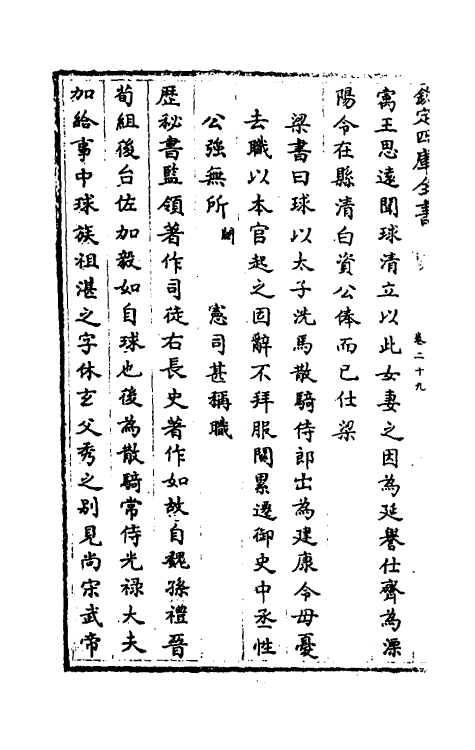 欽定四庫全書
卷二十九
寓王思遠聞球清立以此女妻之因為延譽仕齊為溧
陽令在縣清白資公俸而已仕梁
梁書曰球以太子洗馬散騎侍郎出為建康令母憂
去職以本官起之固辭不拜服闋累遷御史中丞性
公強無所 闕 憲司甚稱職
歴秘書監領著作司徒右長史著作如故自魏孫禮晉
荀組後台佐加毅如自球也後為散騎常侍光禄大夫
加給事中球族祖湛之字休玄父秀之别見尚宋武帝